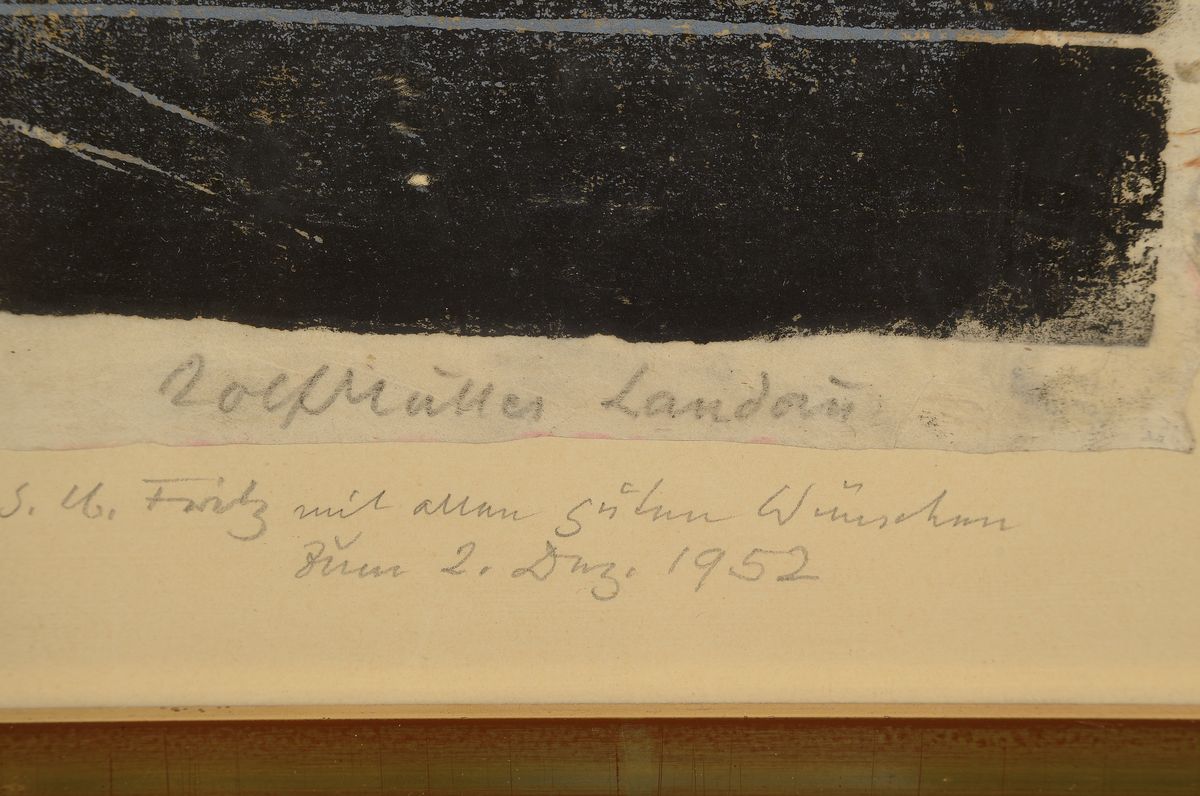 Rolf Müller Landau
s. lb. Fritz mit allen guten Wünschen
zum 2. Dez. 1952